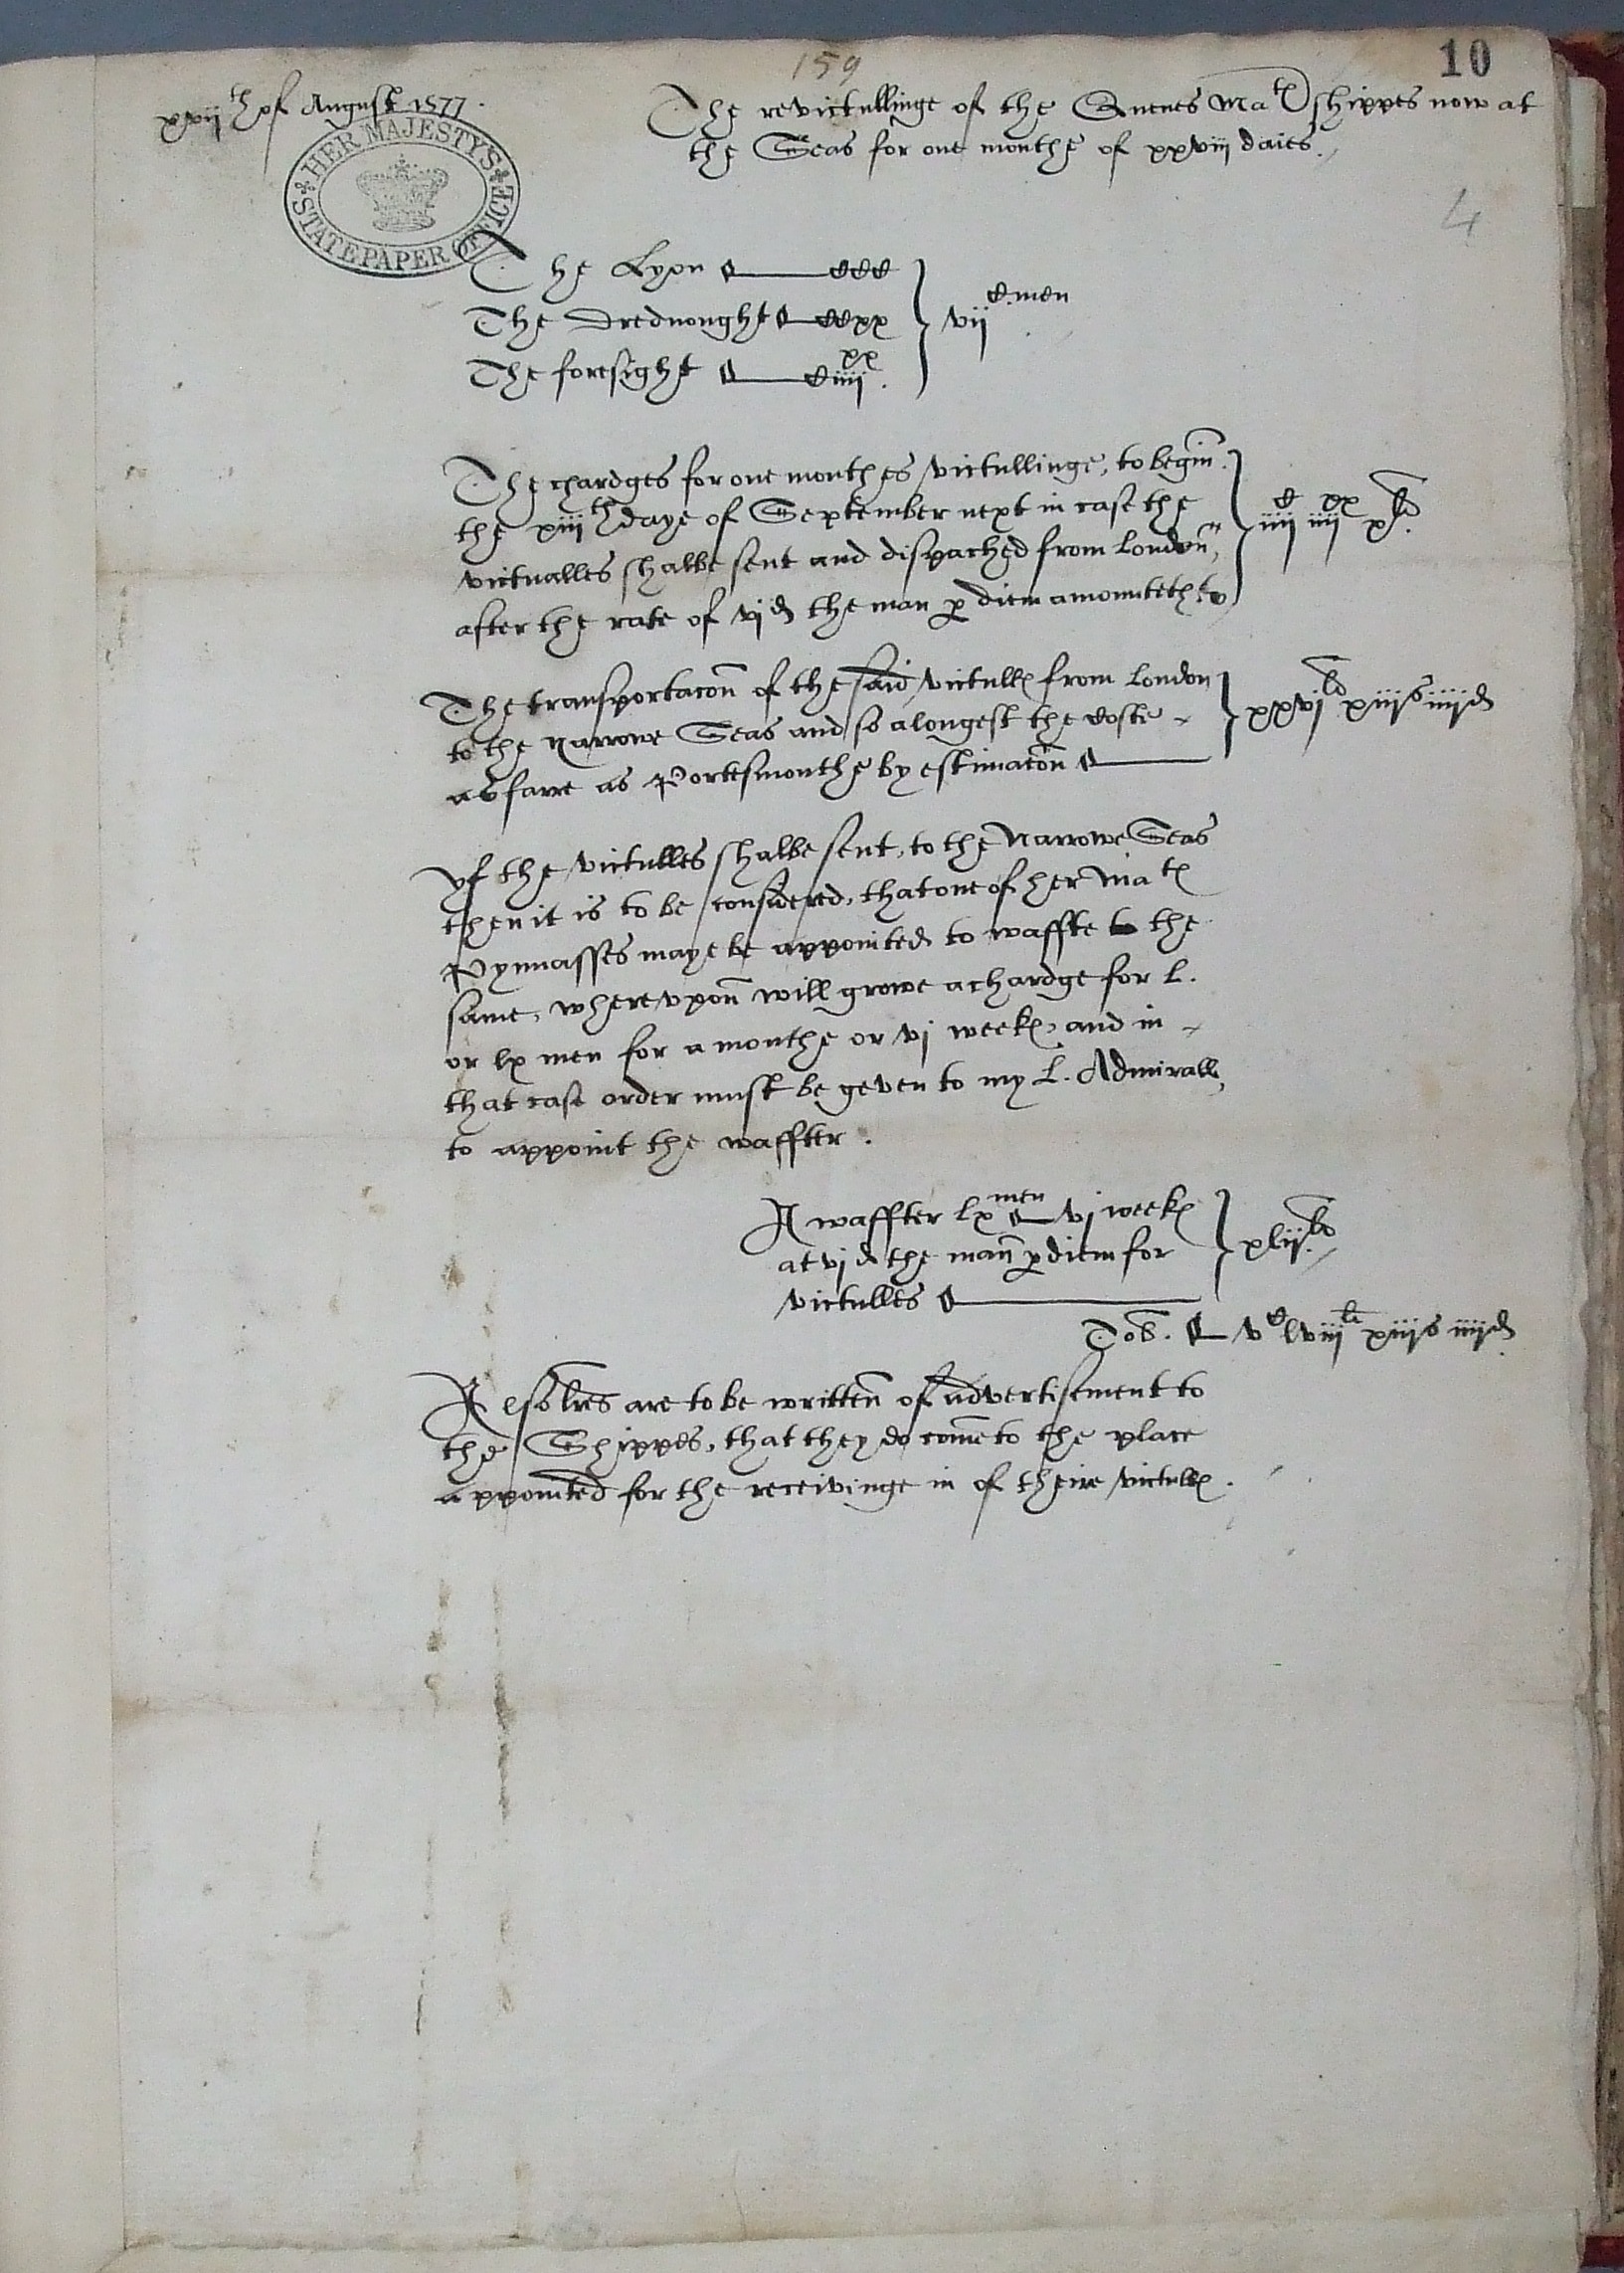 159
10
xvijth of August 1577.
The revictullinge of the Quenes Matꝭ shippes now at
the Seas for one monthe of xxviij daies.
HER MAJESTY'S
STATE PAPER OFFICE
4
The Lyon — CCC
The Drednought — CCxx
The foresight — Ciiijxx.
vijC men
The chardges for one monthes victullinge, to begin̄.
the xiiijth daye of September next in case the
victualles shalbe sent and dispached from London,
after the rate of vjd the man ꝑ diem amounteth to
iiijC iiijxx xli.
The transportacōn of the said victullꝭ from London
to the Narrowe Seas and so alongest the Coste
as farre as Portesmouthe by estimacōn —
xxvjli xiijs iiijd
Yf the victulles shalbe sent, to the Narrowe Seas
then it is to be considered, that one of her Matꝭ
Pynnasses maye be appointed to waffte the
same, wherevpon̄ will growe a chardge for l.
or lx men for a monthe or vj weekꝭ, and in
that case order must be geven to my L. Admirall,
to appoint the waffter.
A waffter lx men — vj weekꝭ
at vjd the man̄ ꝑ diem for
victulles —
xlijli.
Tol̄s. — vC lviijli xiijs iiijd
Also lr̄es are to be written̄ of advertisement to
the Shippes, that they do com̄e to the place
appointed for the receivinge in of theire victullꝭ.